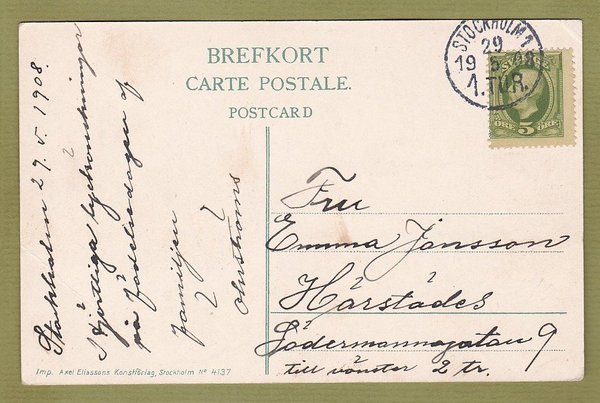 BREFKORT
CARTE POSTALE.
POSTCARD
STOCKHOLM 1
29
19 5 08
1. TUR.
5
ÖRE ÖRE
Stockholm 29. v. 1908.
Hjertliga lyckönskningar
på födelsedagen af
familjen
Fru
Emma Jonsson
Härstädes
Södermannagatan 9
till vänster 2 tr.
Imp. Axel Eliassons Konstförlag, Stockholm Nº 4137